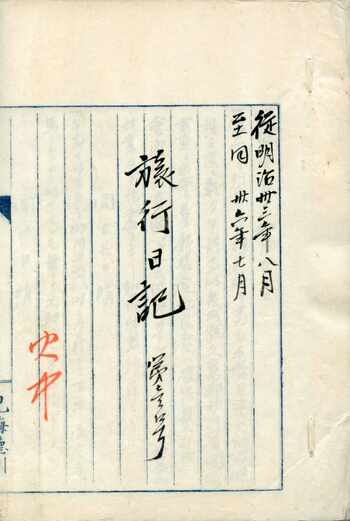 従明治卅三年八月
至同 卅六年七月
旅行日記 第壹号
火中